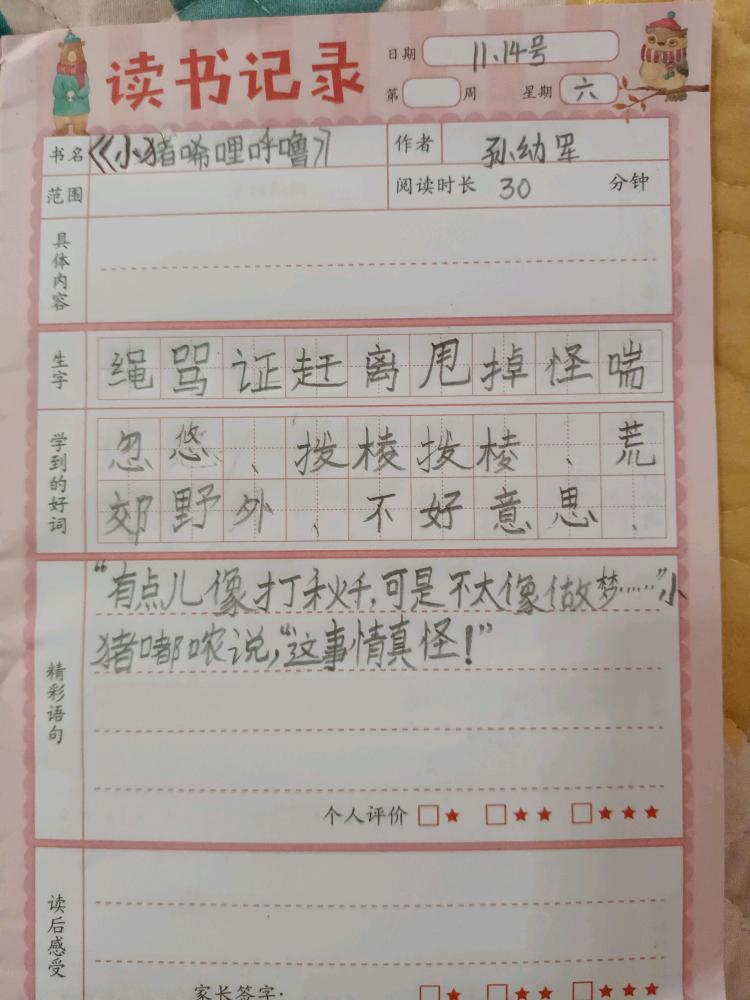 读书记录
日期 11.14号
第 周 星期 六
书名 《小猪唏哩呼噜》 作者 孙幼军
范围 阅读时长 30 分钟
具体内容
生字 绳骂证赶离甩掉怪喘
学到的好词 忽悠、拨棱拨棱、荒
郊野外、不好意思、
精彩语句 “有点儿像打秋千,可是不太像做梦……”小
猪嘟哝说,“这事情真怪!”
个人评价 □★ □★★ □★★★
读后感受
家长签字: □★ □★★ □★★★